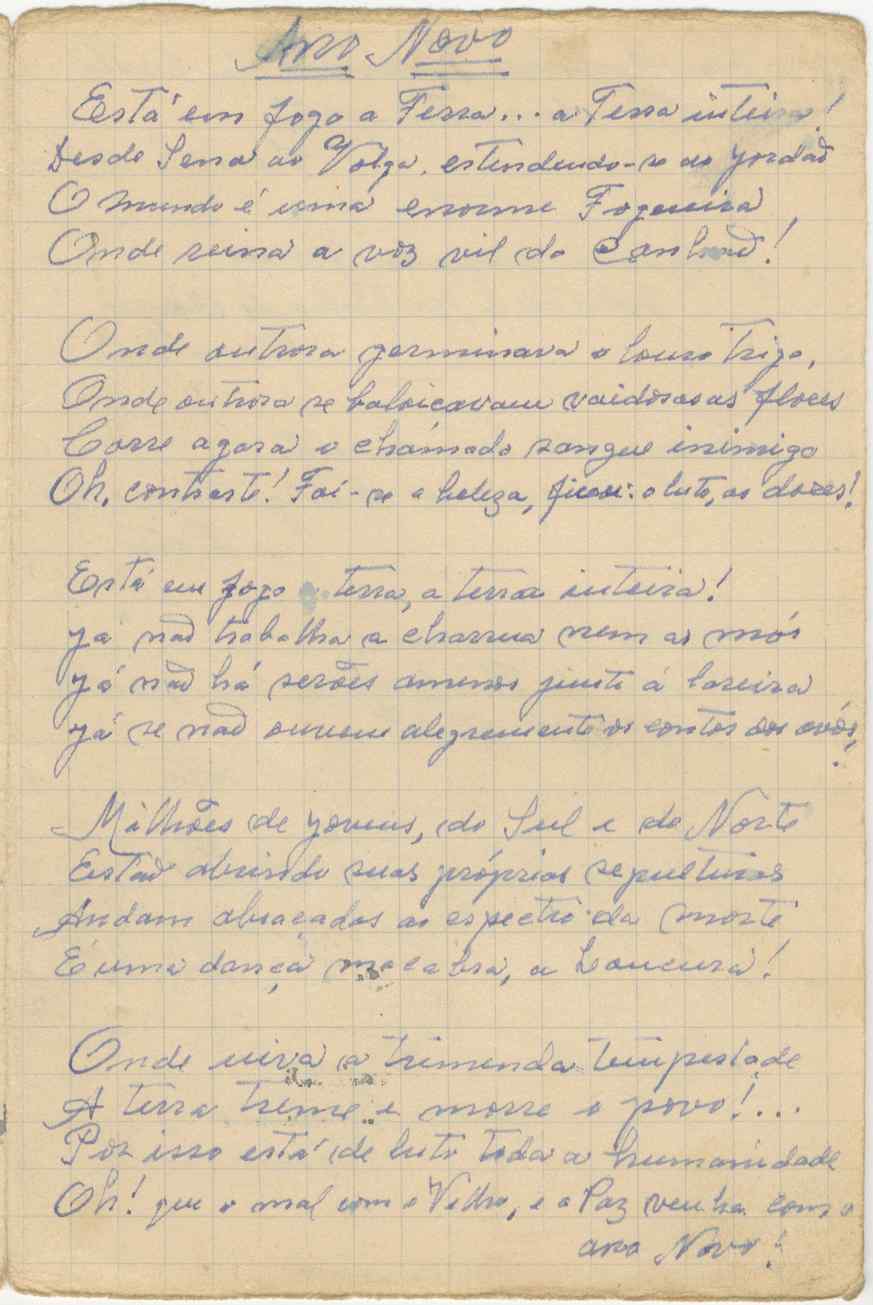 Ano Novo
Está em fogo a Terra... a Terra inteira!
Desde Sena ao Volga, estendendo-se ao Jordão
O mundo é uma enorme Fogueira
Onde reina a voz vil do Canhão!
Onde outrora germinava o louro trigo,
Onde outrora se baloiçavam vaidosas as flores
Corre agora o chamado sangue inimigo
Oh, contraste! Foi-se a beleza, ficou: o luto, as dores!
Está em fogo a terra, a terra inteira!
Já não trabalha a charrua nem as mós
Já não há serões amenos junto á lareira
Já se não ouvem alegremente os contos dos avós!
Milhões de jovens, do Sul e do Norte
Estão abrindo suas próprias sepulturas
Andam abraçados ao espectro da morte
É uma dança macabra, a Loucura!
Onde uiva a trimenda tempestade
A terra treme e morre o povo!...
Por isso está de luto toda a humanidade
Oh! que o mal com o Velho, e a Paz venha com o
ano Novo!